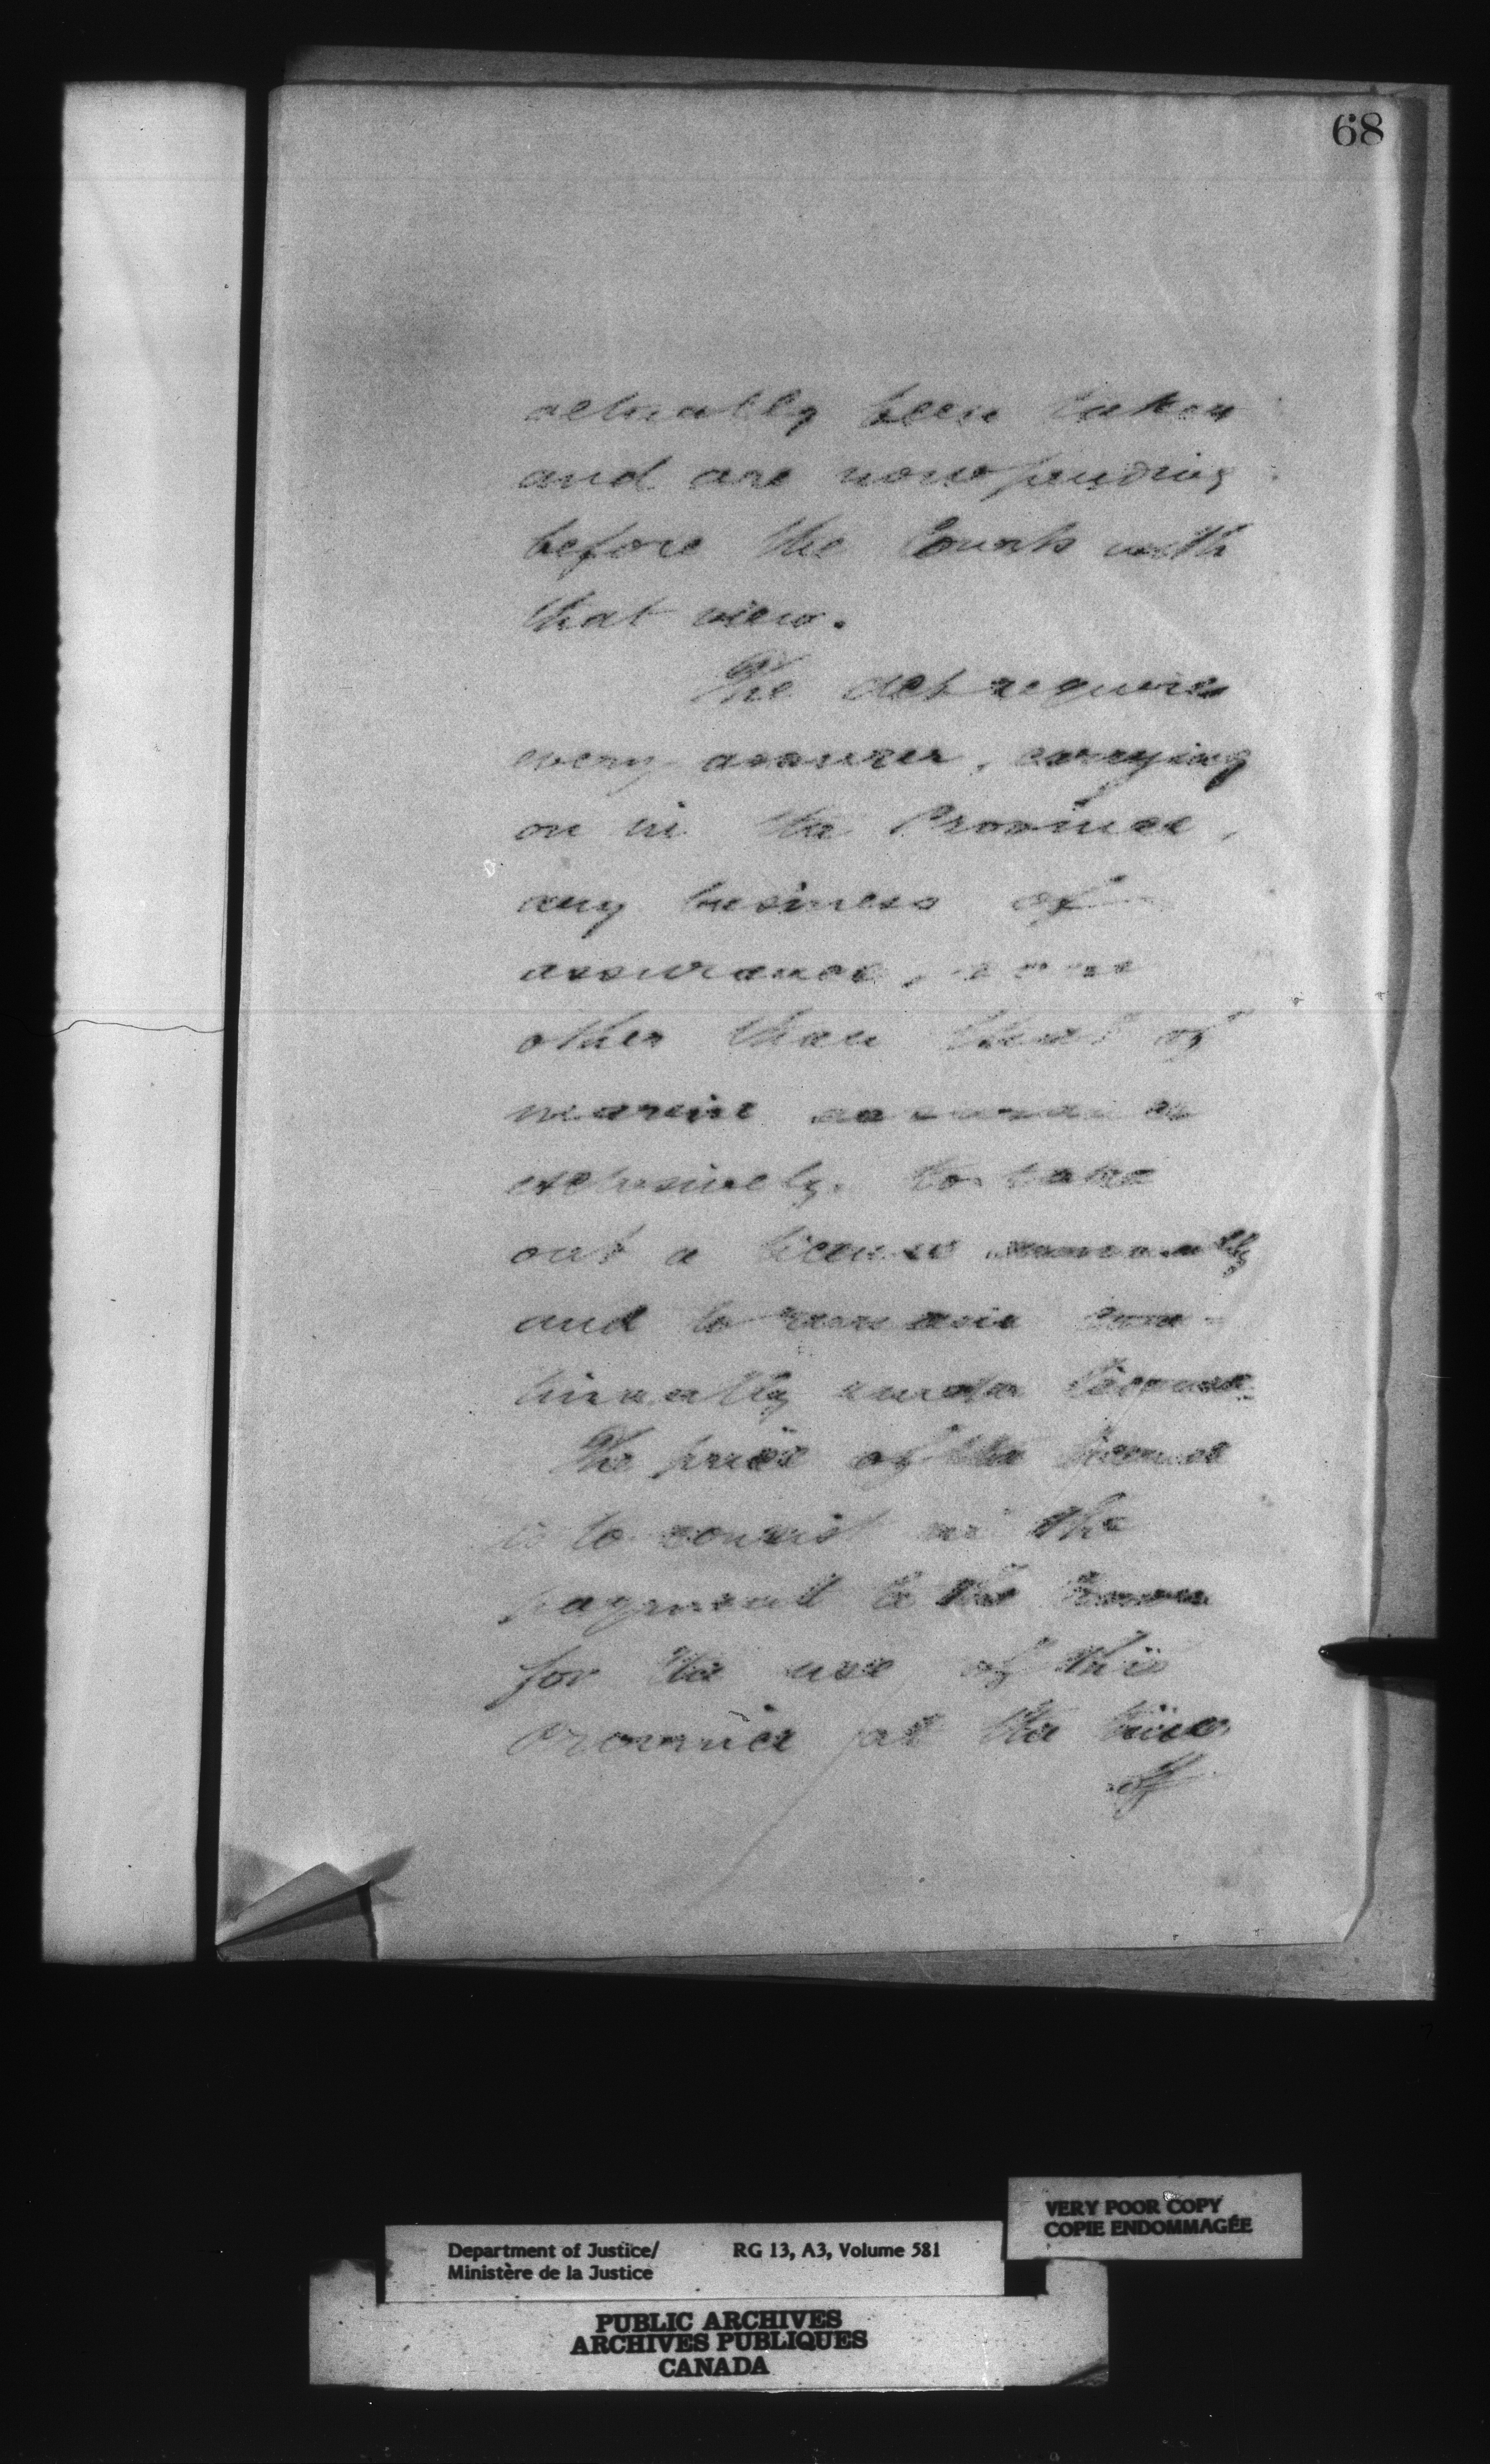 68
actually been taken
and are now pending
before the Courts with
that view.
The act requires
every assurer, carrying
on in the Province,
any business of
assurance,
other than that of
marine assurance
exclusively, to take
out a license annually
and to remain con-
tinually under license.
The price of the license
is to consist in the
payment to the Crown
for the use of this
Province at the time
of
VERY POOR COPY
COPIE ENDOMMAGÉE
Department of Justice/ RG 13, A3, Volume 581
Ministère de la Justice
PUBLIC ARCHIVES
ARCHIVES PUBLIQUES
CANADA